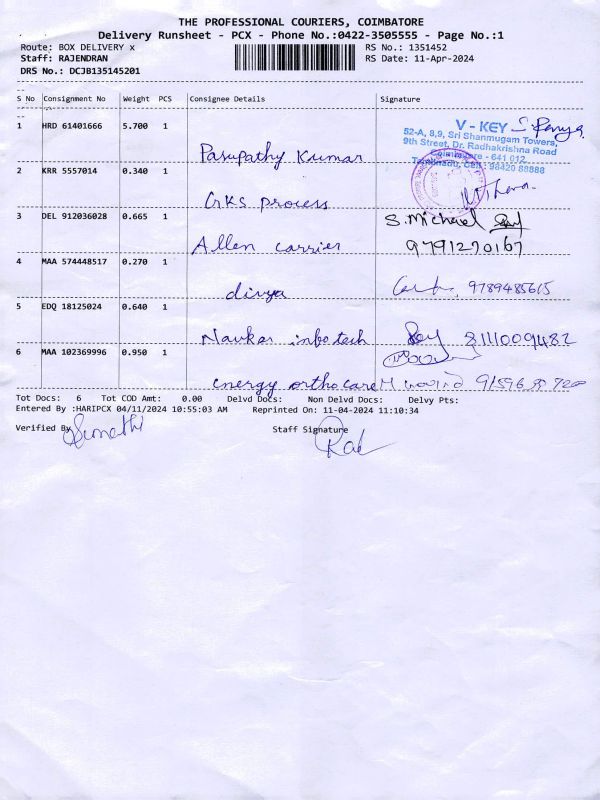 THE PROFESSIONAL COURIERS, COIMBATORE
Delivery Runsheet - PCX - Phone No.:0422-3505555 - Page No.:1
Route: BOX DELIVERY x
RS No.: 1351452
Staff: RAJENDRAN
RS Date: 11-Apr-2024
DRS No.: DCJB135145201
S No Consignment No Weight PCS Consignee Details Signature
1 HRD 61401666 5.700 1
V - KEY
52-A, 8,9, Sri Shanmugam Towers,
9th Street, Dr. Radhakrishna Road
Coimbatore - 641 012.
Tamilnadu, Cell : 98420 88888
Pasupathy Kumar
2 KRR 5557014 0.340 1
CrKS process
3 DEL 912036028 0.665 1
S. Michael
Allen carrier 9791270167
4 MAA 574448517 0.270 1
divya 9789485615
5 EDQ 18125024 0.640 1
Navkar infotech 8111009482
6 MAA 102369996 0.950 1
energy orthocare
Tot Docs: 6 Tot COD Amt: 0.00 Delvd Docs: Non Delvd Docs: Delvy Pts:
Entered By :HARIPCX 04/11/2024 10:55:03 AM Reprinted On: 11-04-2024 11:10:34
Verified By Staff Signature